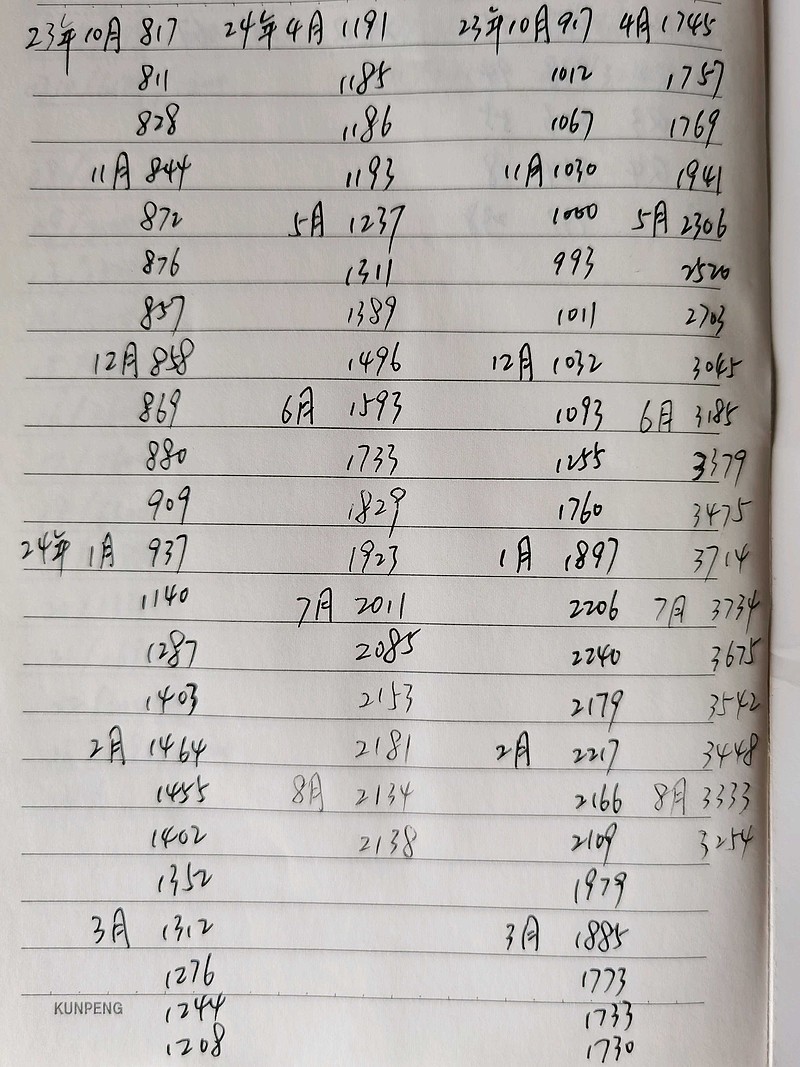 23年10月 817 24年4月 1191 23年10月 917 4月 1745
811 1185 1012 1757
828 1186 1067 1769
11月 844 1193 11月 1030 1941
872 5月 1237 1000 5月 2306
876 1311 993 2520
857 1389 1011 2703
12月 858 1496 12月 1032 3045
869 6月 1593 1093 6月 3185
880 1733 1255 3379
909 1829 1760 3475
24年 1月 937 1923 1月 1897 3714
1140 7月 2011 2206 7月 3734
1287 2085 2240 3675
1403 2153 2179 3542
2月 1464 2181 2月 2217 3448
1455 8月 2134 2166 8月 3333
1402 2138 2109 3254
1352 1979
3月 1312 3月 1885
1276 1773
KUNPENG 1244 1733
1208 1730